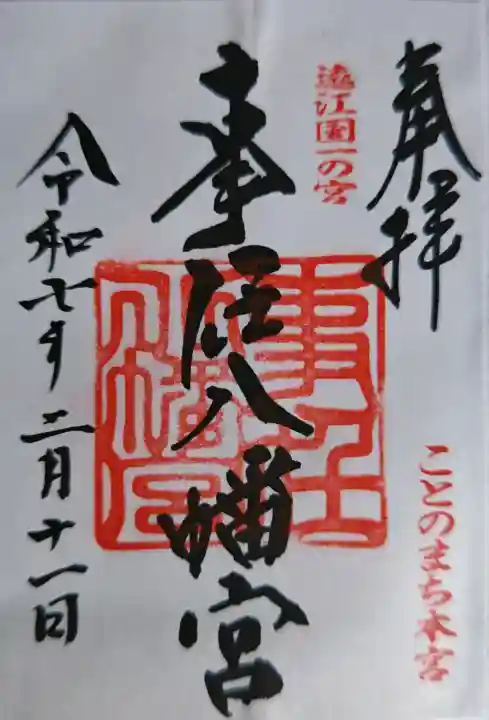 奉拝
遠江國一の宮
ことのまち本宮
事任八幡宮
令和七年二月十一日